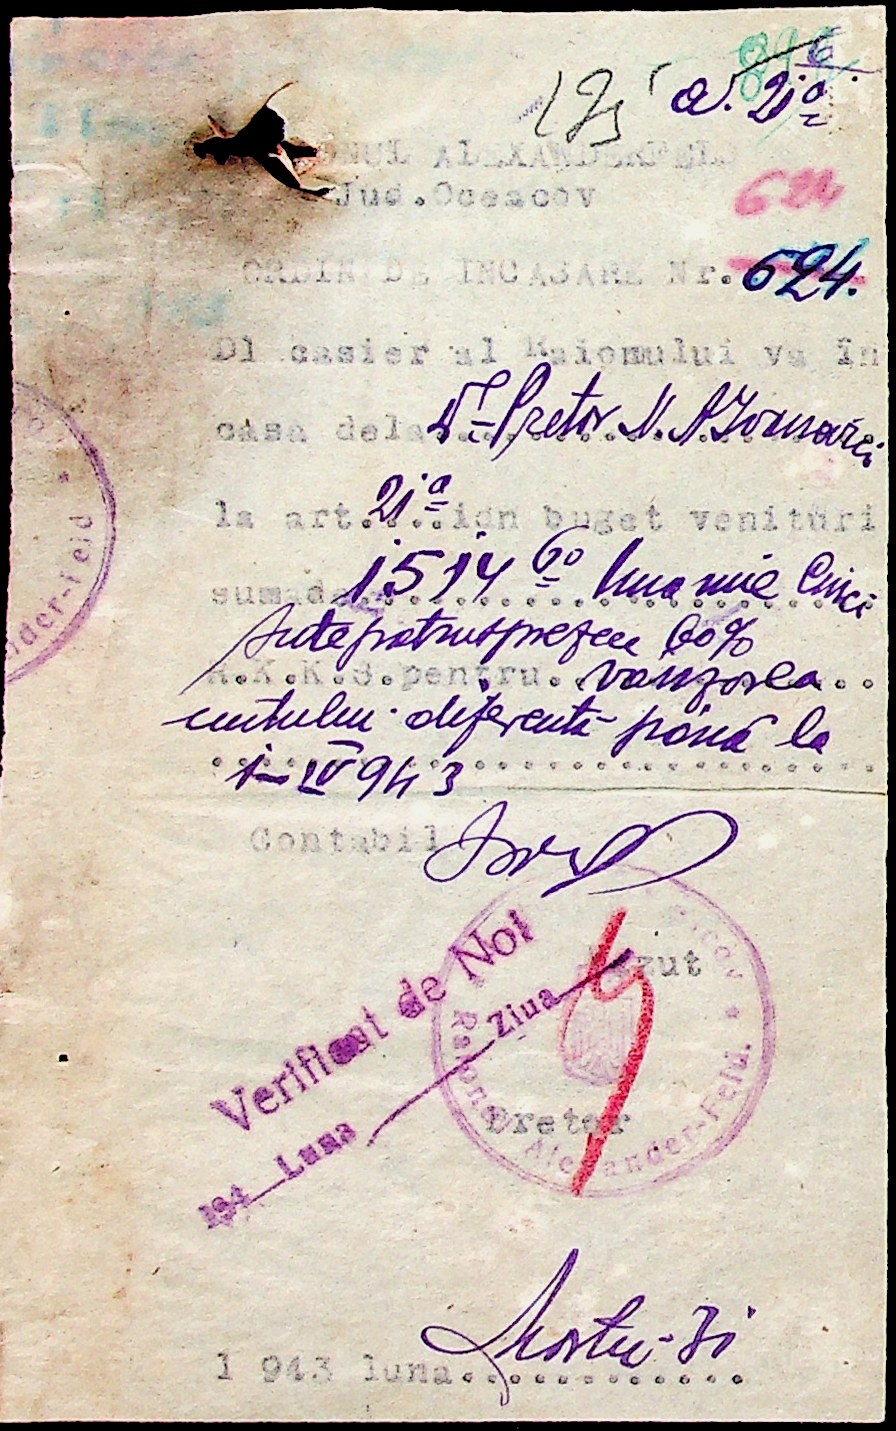 6
125 a. 21ª
RAIONUL ALEXANDERFELD
Jud.Oceacov
624
ORDIN DE INCASARE Nr. 624.
Dl casier al Raionului va în
casa dela Dl Pretor N.
la art. 21ª din buget venituri
suma de 1514 60 Una mie cinci
sute patrusprezece 60%
R.K.K.S. pentru vânzarea
untului diferență până la
1-IV 943
Contabil
Verificat de Noi
194 Luna Ziua
Văzut
Raionul Alexander-Feld.
Pretor
der-Feld
1 943 luna Martie 31